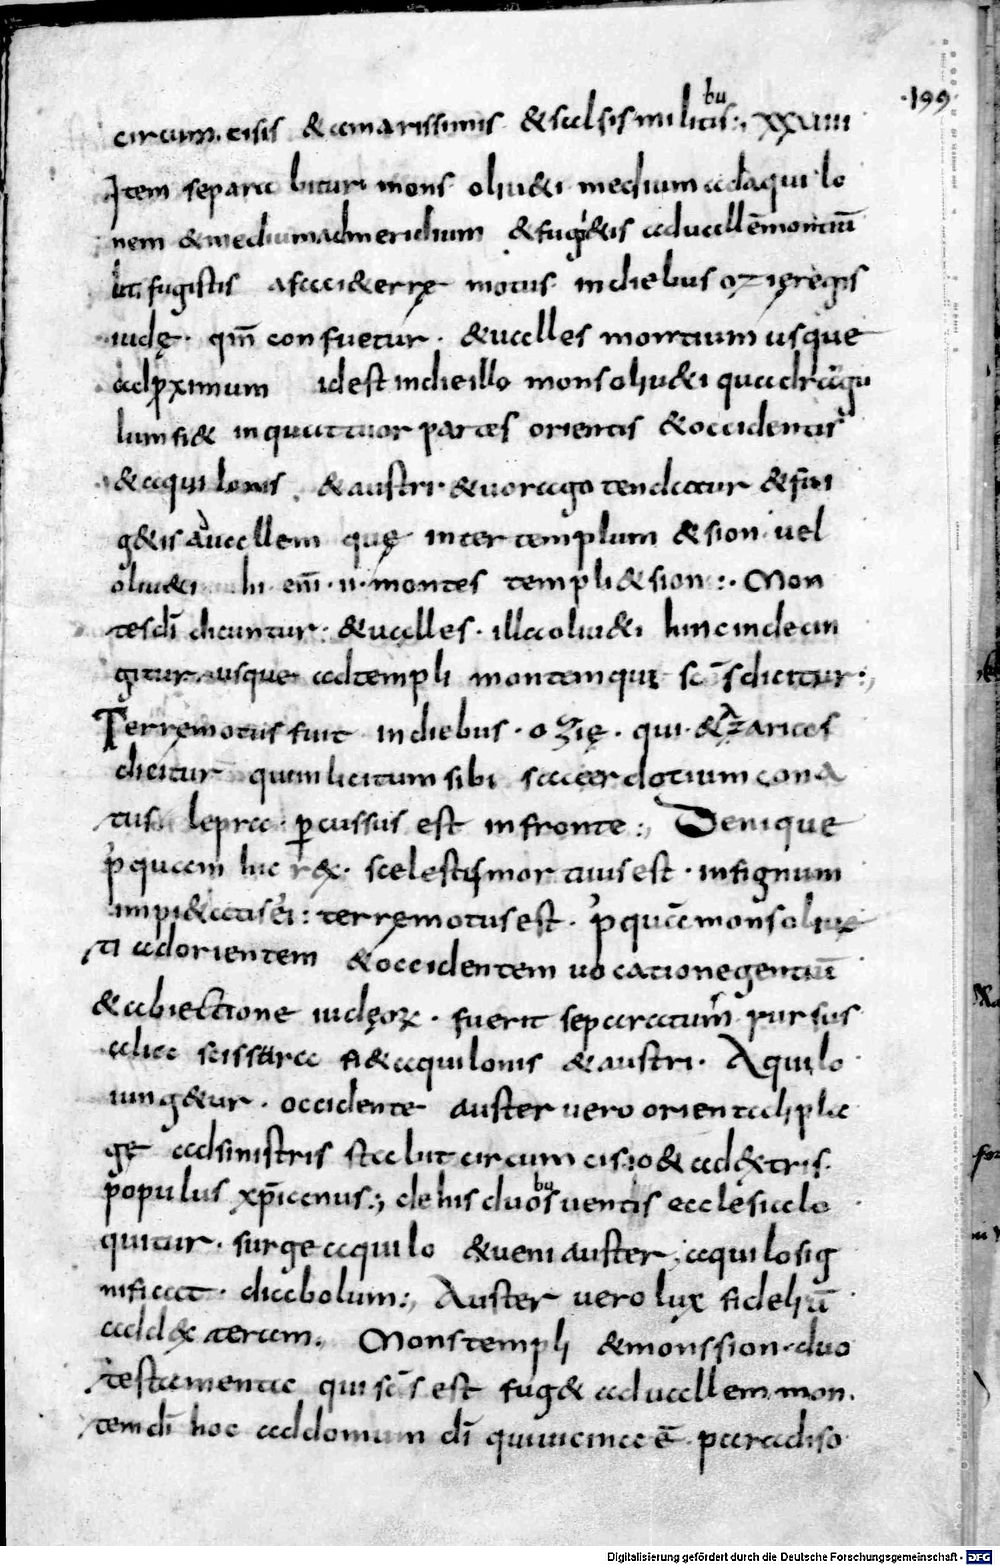 ·199·
circumcisis & amarissimis & scelsis militibus:, XXXIIII
Item separabitur mons oliu&i medium ad aquilo
nem & medium ad meridium & fugi&is ad uallē montiū
sic fugistis a facci&errę motus in diebus ozię regis
iudę · qm̄ confuetur · & ualles montium usque
ad p̱ximum id est in die illo mons oliu&i quadrāgu
lum fi& in quattuor partes orientis & occidentis
& aquilonis & austri · & uorago tendatur & fu
g&is ad uallem quę inter templum & sion uel
oliu&i hi eni̅ ·ii· montes templi & sion :· Mon
tes dī dicuntur · & ualles · illa oliu&i hinc inde cin
gitur usque ad templi montem qui sc̄s dicitur:,
Terręmotus fuit in diebus · ozię · qui · & zarias
dicitur quum licitum sibi sacerdotium cona
tus lepra · p̱cussus est in fronte:, Denique
p̄ quam hic r&x scelestis mortuus est · in signum
impi&atis ei: terręmotus est · p̄ quā mons oliue
ti ad orientem & occidentem uocatione gentiū
& abiectione iudęoꝝ · fuerit separatum rursus
alia scissura fi& aquilonis & austri · Aquilo
iung&ur · occidente auster uero orientali pla
gę ad sinistris stabit circumcisio & ad d&xtris
populus xp̄ianus:, de his duobus uentis ecclesia lo
quitur · surge aquilo & ueni auster, aquilo sig
nificat · diabolum:, Auster uero lux fideliū
ad d&xteram. Mons templi & mons sion · duo
testamenta qui sc̄s est fug& ad uallem mon
tem dī hoc ad domum dī qui uicina ē paradiso
Digitalisierung gefördert durch die Deutsche Forschungsgemeinschaft - DFG